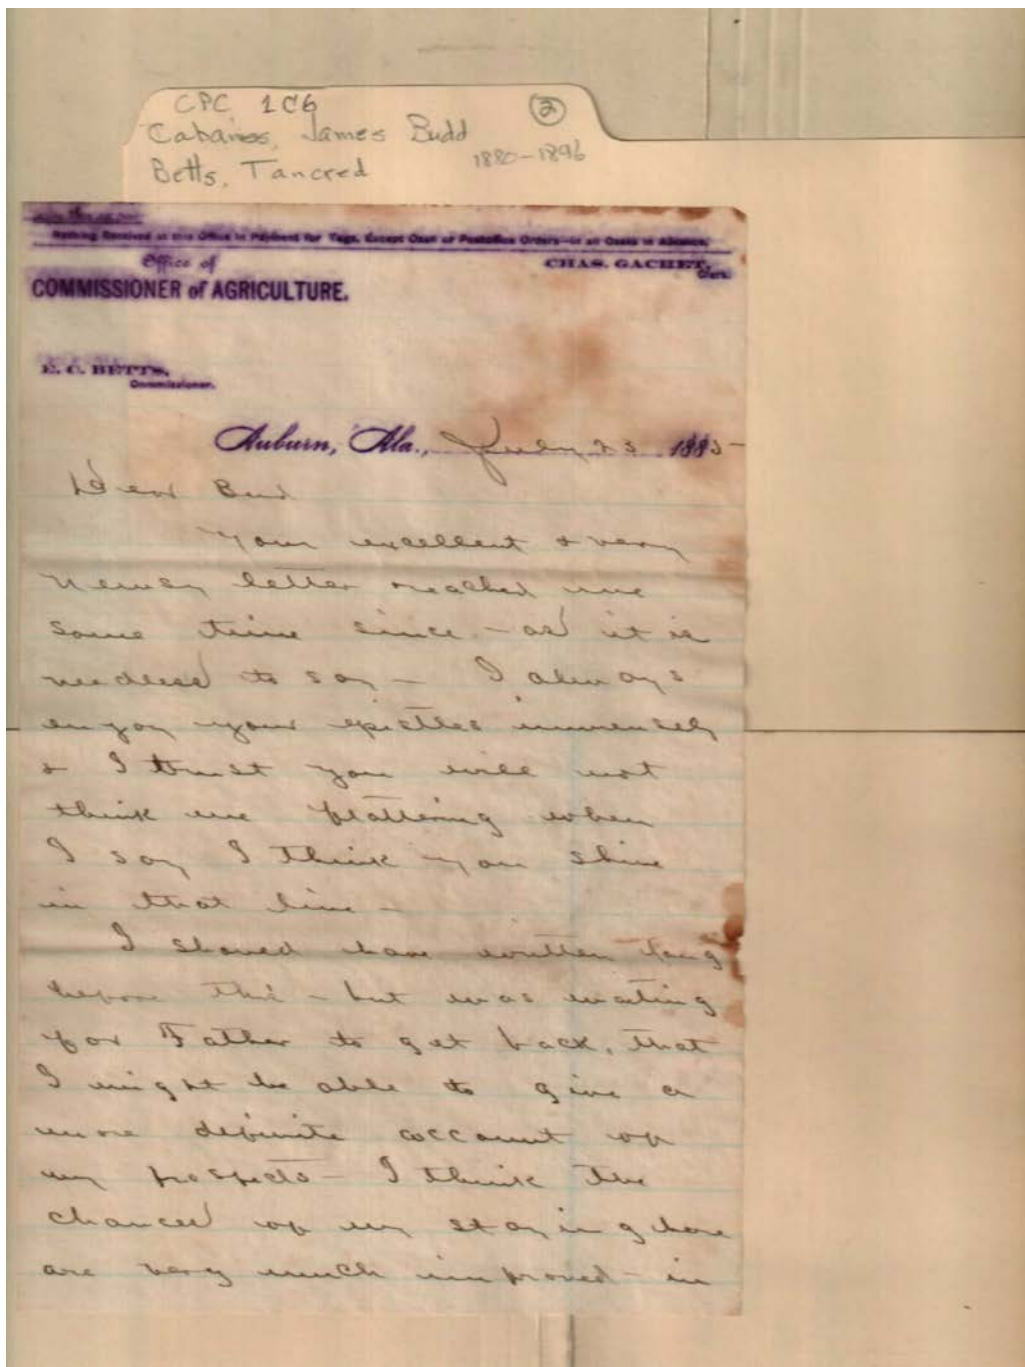 CPC 1C6
②
Cabaniss, James Budd
1880-1896
Betts, Tancred
Nothing Received at this Office in Payment for Tags, Except Cash or Postoffice Orders—in all Cases in Advance.
Office of
CHAS. GACHET,
Clerk.
COMMISSIONER of AGRICULTURE.
E. C. BETTS,
Commissioner.
Auburn, Ala., July 23 1885-
Dear Bud
Your excellent & very
newsy letter reached me
some time since - as it is
needless to say - I always
enjoy your epistles immensely
& I trust you will not
think me flattering when
I say I think you shine
in that line -
I should have written long
before this - but was waiting
for Father to get back, that
I might be able to give a
more definite account of
my prospects - I think the
chances of my staying here
are very much improved - in